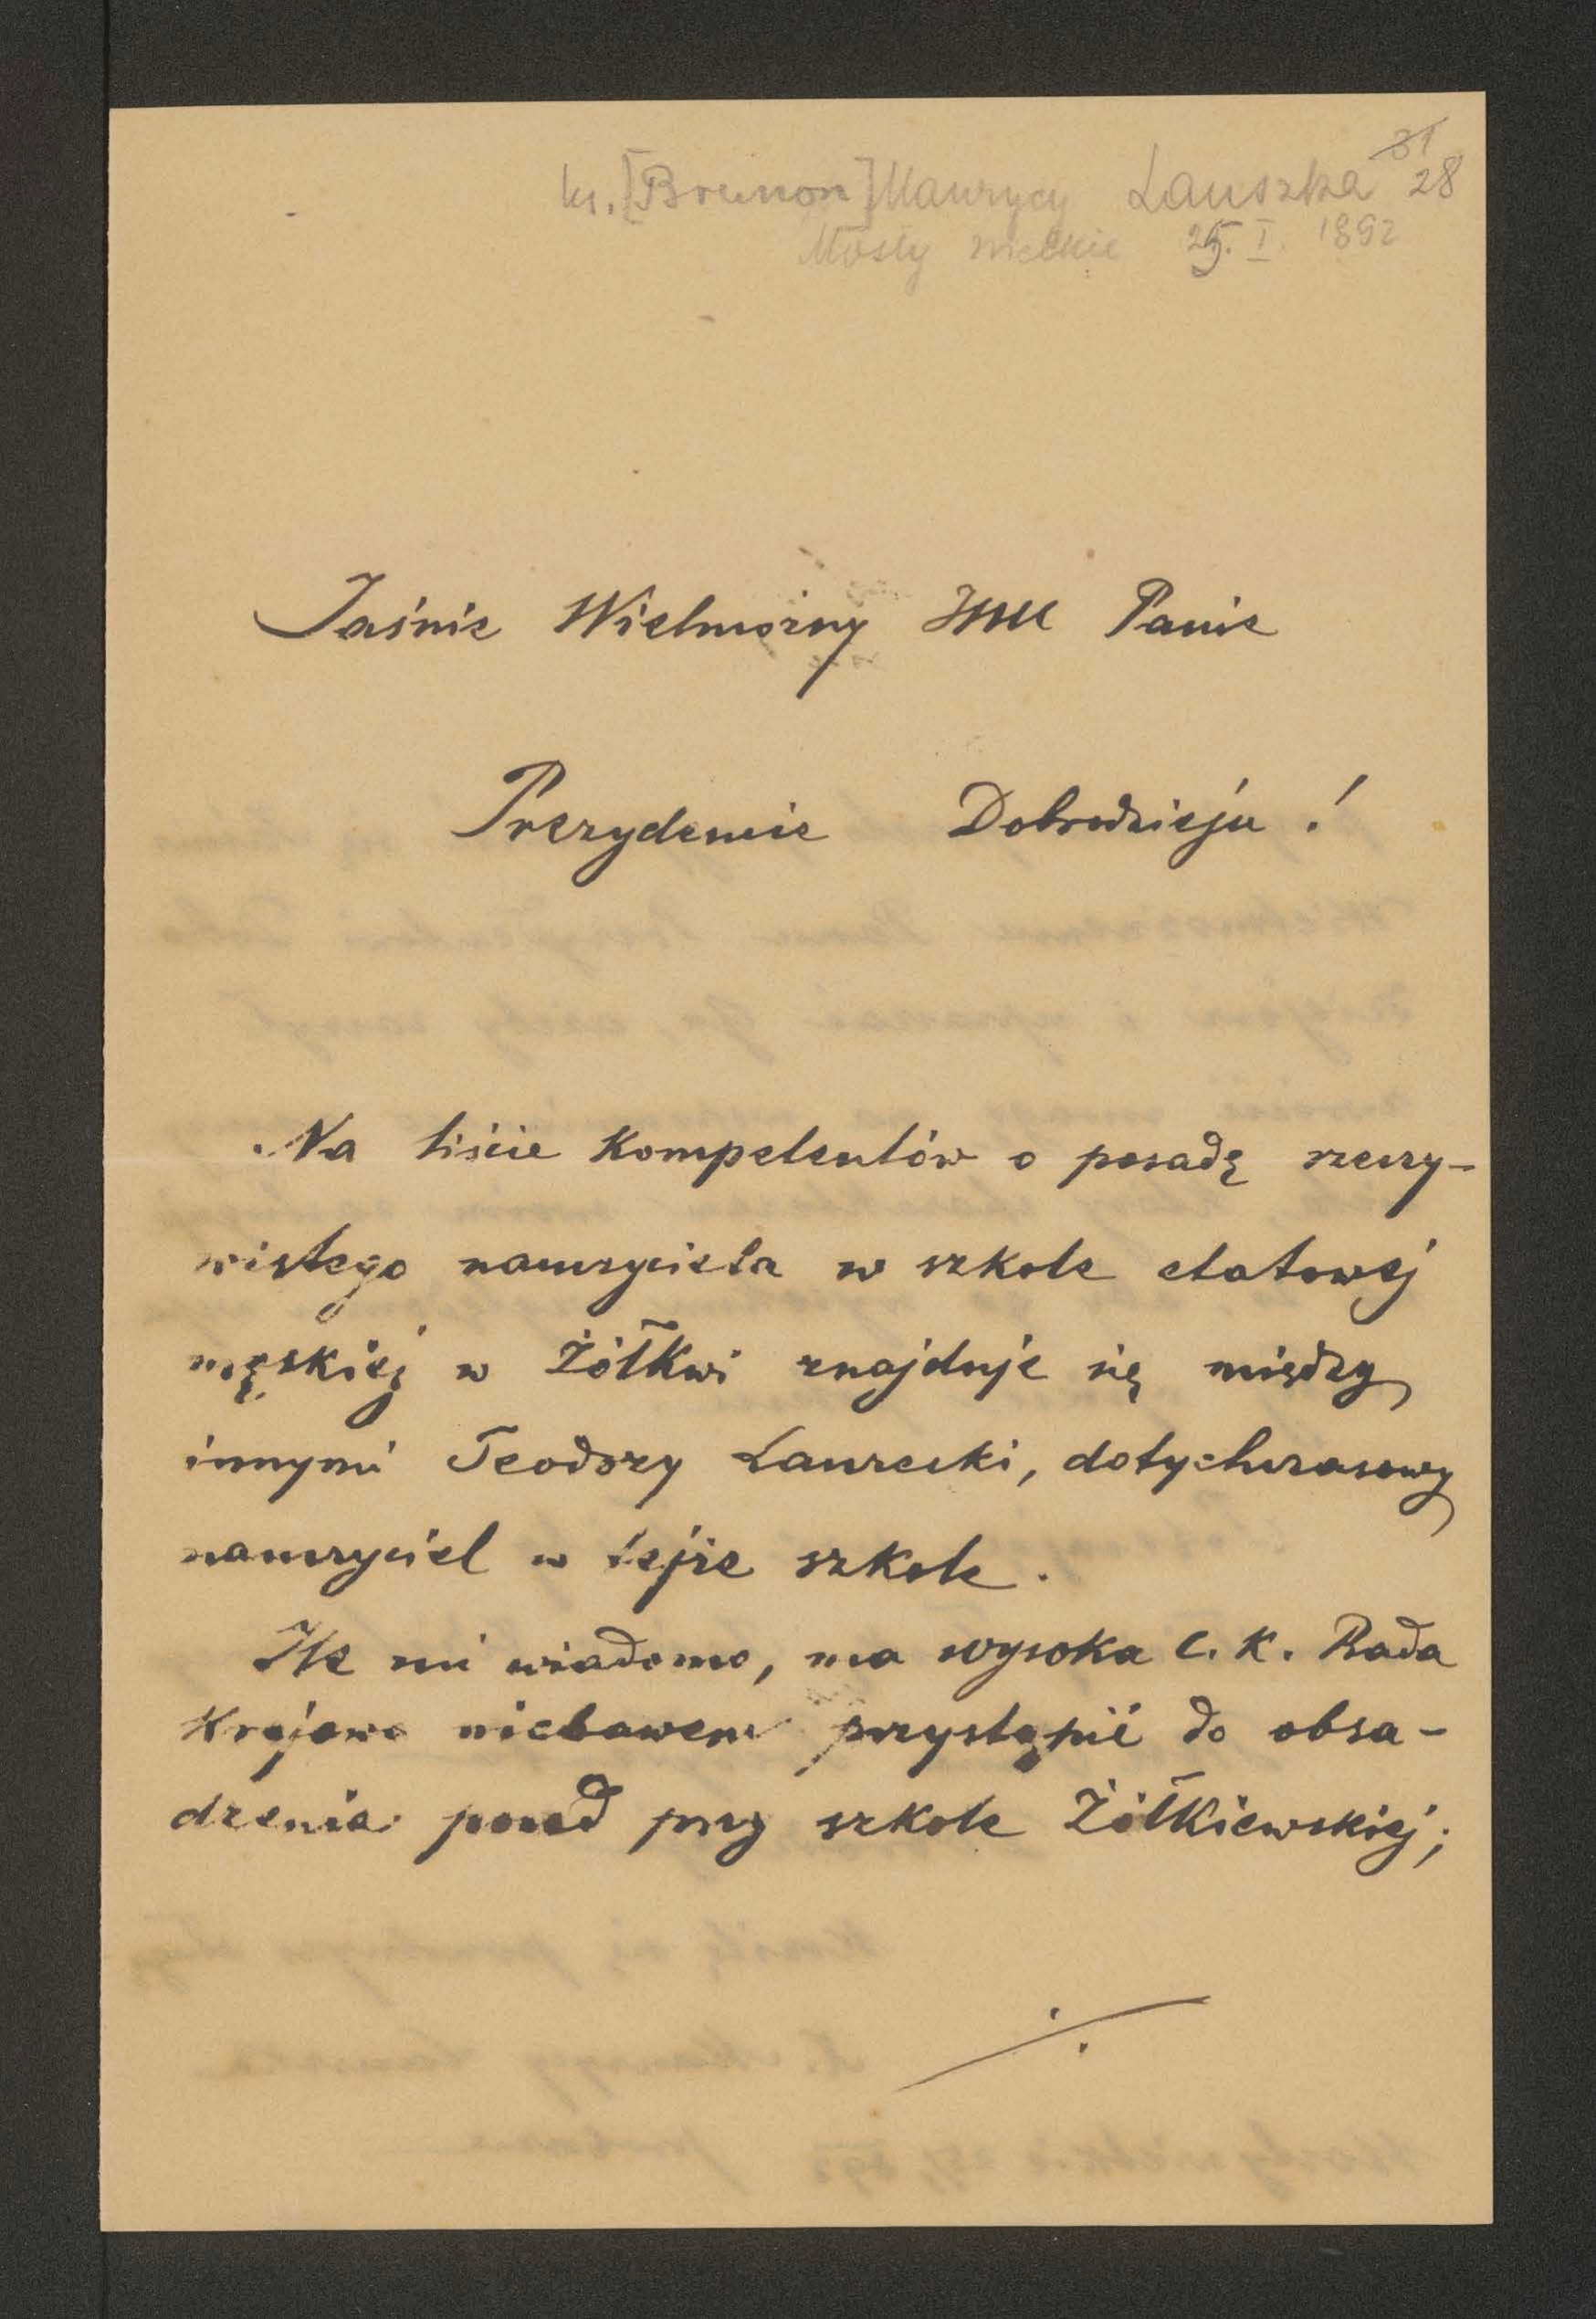 31
ks. [Brunon] Maurycy Lauszka 28
Mosty wielkie 25. I. 1892
Jaśnie Wielmożny JMć Panie
Prezydencie Dobrodzieju!
Na liście kompetentów o posadę rzeczy-
wistego nauczyciela w szkole etatowej
męskiej w Żółkwi znajduje się między
innymi Teodozy Laurecki, dotychczasowy
nauczyciel w tejże szkole.
Ile mi wiadomo, ma wysoka c. k. Rada
Krajowa niebawem przystąpić do obsa-
dzenia posad przy szkole Żółkiewskiej;
./.